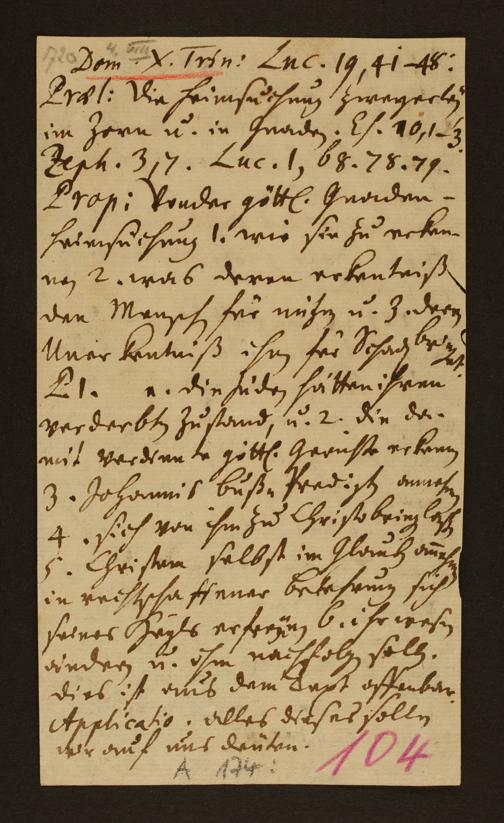 1720 4. VIII
Dom. X. Trin: Luc. 19, 41-48:
Præl: Die heimsuchung zweyerley
im Zorn u. in Gnaden. Es. 10, 1-3.
Zeph. 3, 7. Luc. 1, 68. 78. 79.
Prop: Von der göttl. Gnaden-
heimsuchung 1. wie sie zu erken-
nen 2. was deren erkentniß
den Menschen für nutzen u. 3. deren
Unerkentniß ihm für Schaden bringet.
P 1. 1. die Juden hätten ihren
verderbten Zustand, u. 2. die da-
mit verdiente göttl. Gerichte erkennen
3. Johannis buß-Predigt annehmen
4. sich von ihm zu Christo bringen lassen
5. Christum selbst im Glauben annehmen
in rechtschaffener bekehrung sich
seines Heyls erfreuen 6. ihr wesen
ändern u. ihm nachfolgen sollen.
dies ist aus dem Text offenbar.
Applicatio. alles dieses sollen
wir auf uns deuten.
A 174: 104